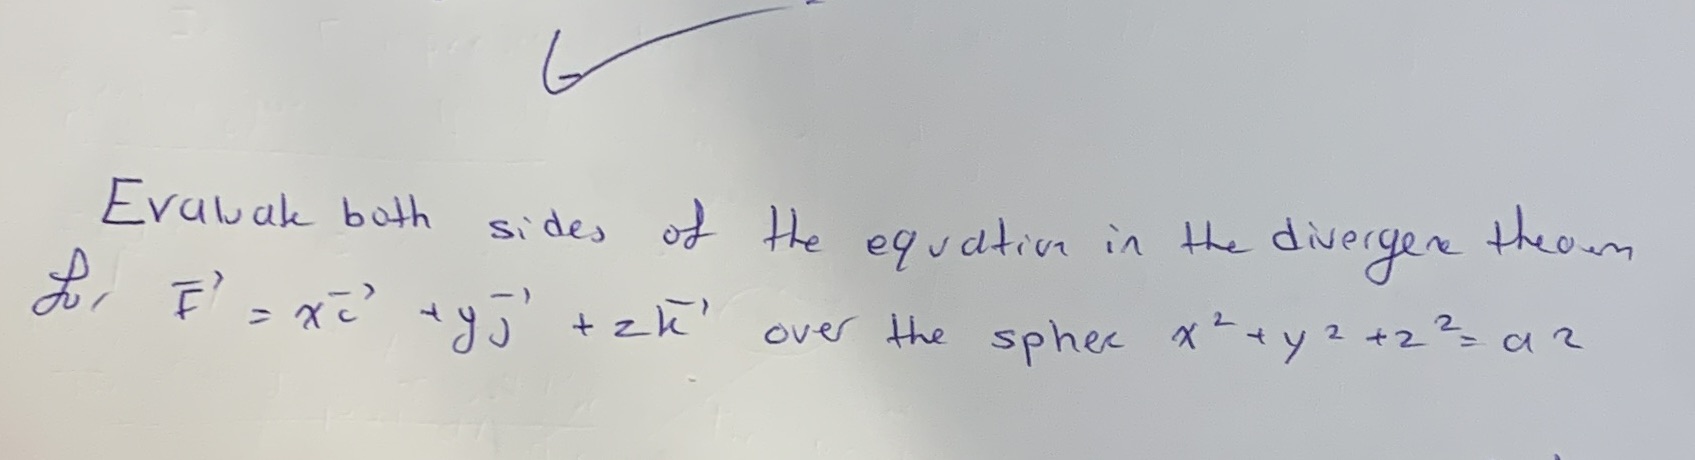 Evaluate both sides of the equation in the divergence theorem
for F = xi + yj + zk over the sphere x² + y² + z² = a²